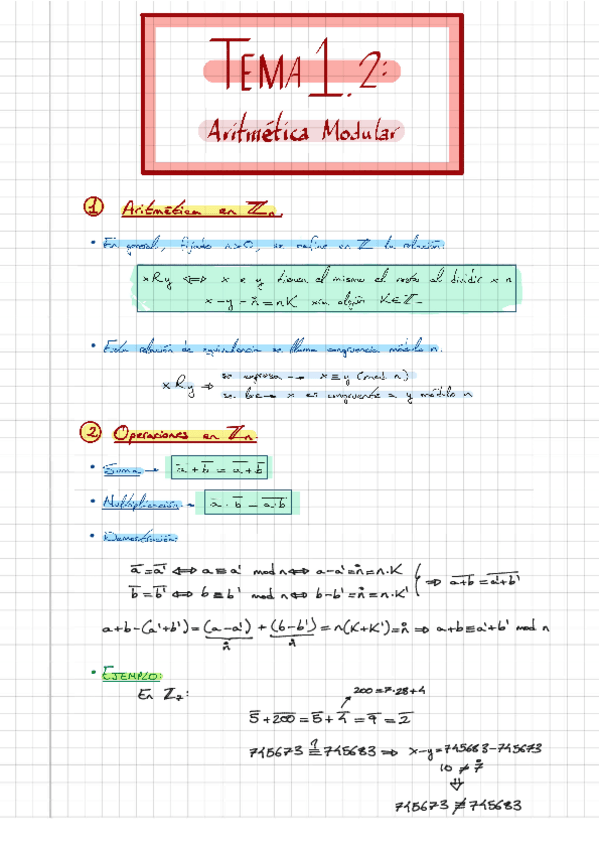 TEMA 1.2:
Aritmética Modular
1 Aritmética en ℤn.
• En general, fijado n>0, se define en ℤ la relación
xRy ⟺ x e y tienen el mismo el resto al dividir x n
x-y = n̊ = nK para algún K∈ℤ
• Esta relación de equivalencia se llama congruencia módulo n.
xRy ⇒ se expresa → x≡y (mod. n)
se lee → x es congruente a y módulo n
2 Operaciones en ℤn.
• Suma → a̅ + b̅ = a̅+̅b̅
• Multiplicación → a̅ · b̅ = a̅·̅b̅
• Demostración:
a̅ = a̅'̅ ⟺ a≡a' mod n ⟺ a-a' = n̊ = n·K
b̅ = b̅'̅ ⟺ b≡b' mod n ⟺ b-b' = n̊ = n·K' ⇒ a̅+̅b̅ = a̅'̅+̅b̅'̅
a+b-(a'+b') = (a-a') + (b-b') = n(K+K') = n̊ ⇒ a+b≡a'+b' mod n
n̊ n̊
• EJEMPLO:
En ℤ7:
200=7·28+4
5̅ + 2̅0̅0̅ = 5̅ + 4̅ = 9̅ = 2̅
745673 ≟ 745683 ⇒ x-y = 745683-745673
10 ≠ 7̊
⇓
745673 ≢ 745683